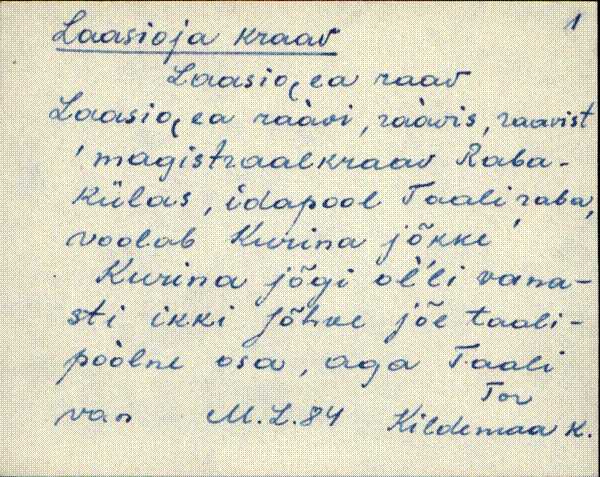 1
Laasioja kraav
Laasio̯ea raav
Laasio̯ea raàvi, raàvis, raavist
'magistraalkraav Raba-
külas, idapool Taali raba,
voolab Kurina jõkke'
Kurina jõgi ol̀li vana-
sti ikki jõhve jõe taali-
poòlne osa, aga Taali
Tor
van M.L.84 Kildemaa k.